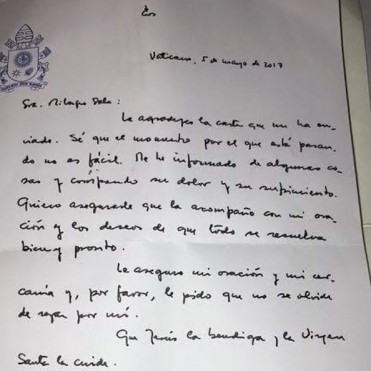 Vaticano, 5 de mayo de 2017
Sra. Milagro Sala:
Le agradezco la carta que me ha en-
viado. Sé que el momento por el que está pasan-
do no es fácil. Me he informado de algunas co-
sas y comprendo su dolor y su sufrimiento.
Quiero asegurarle que la acompaño con mi ora-
ción y los deseos de que todo se resuelva
bien y pronto.
Le aseguro mi oración y mi cer-
canía y, por favor, le pido que no se olvide
de rezar por mí.
Que Jesús la bendiga y la Virgen
Santa la cuide.